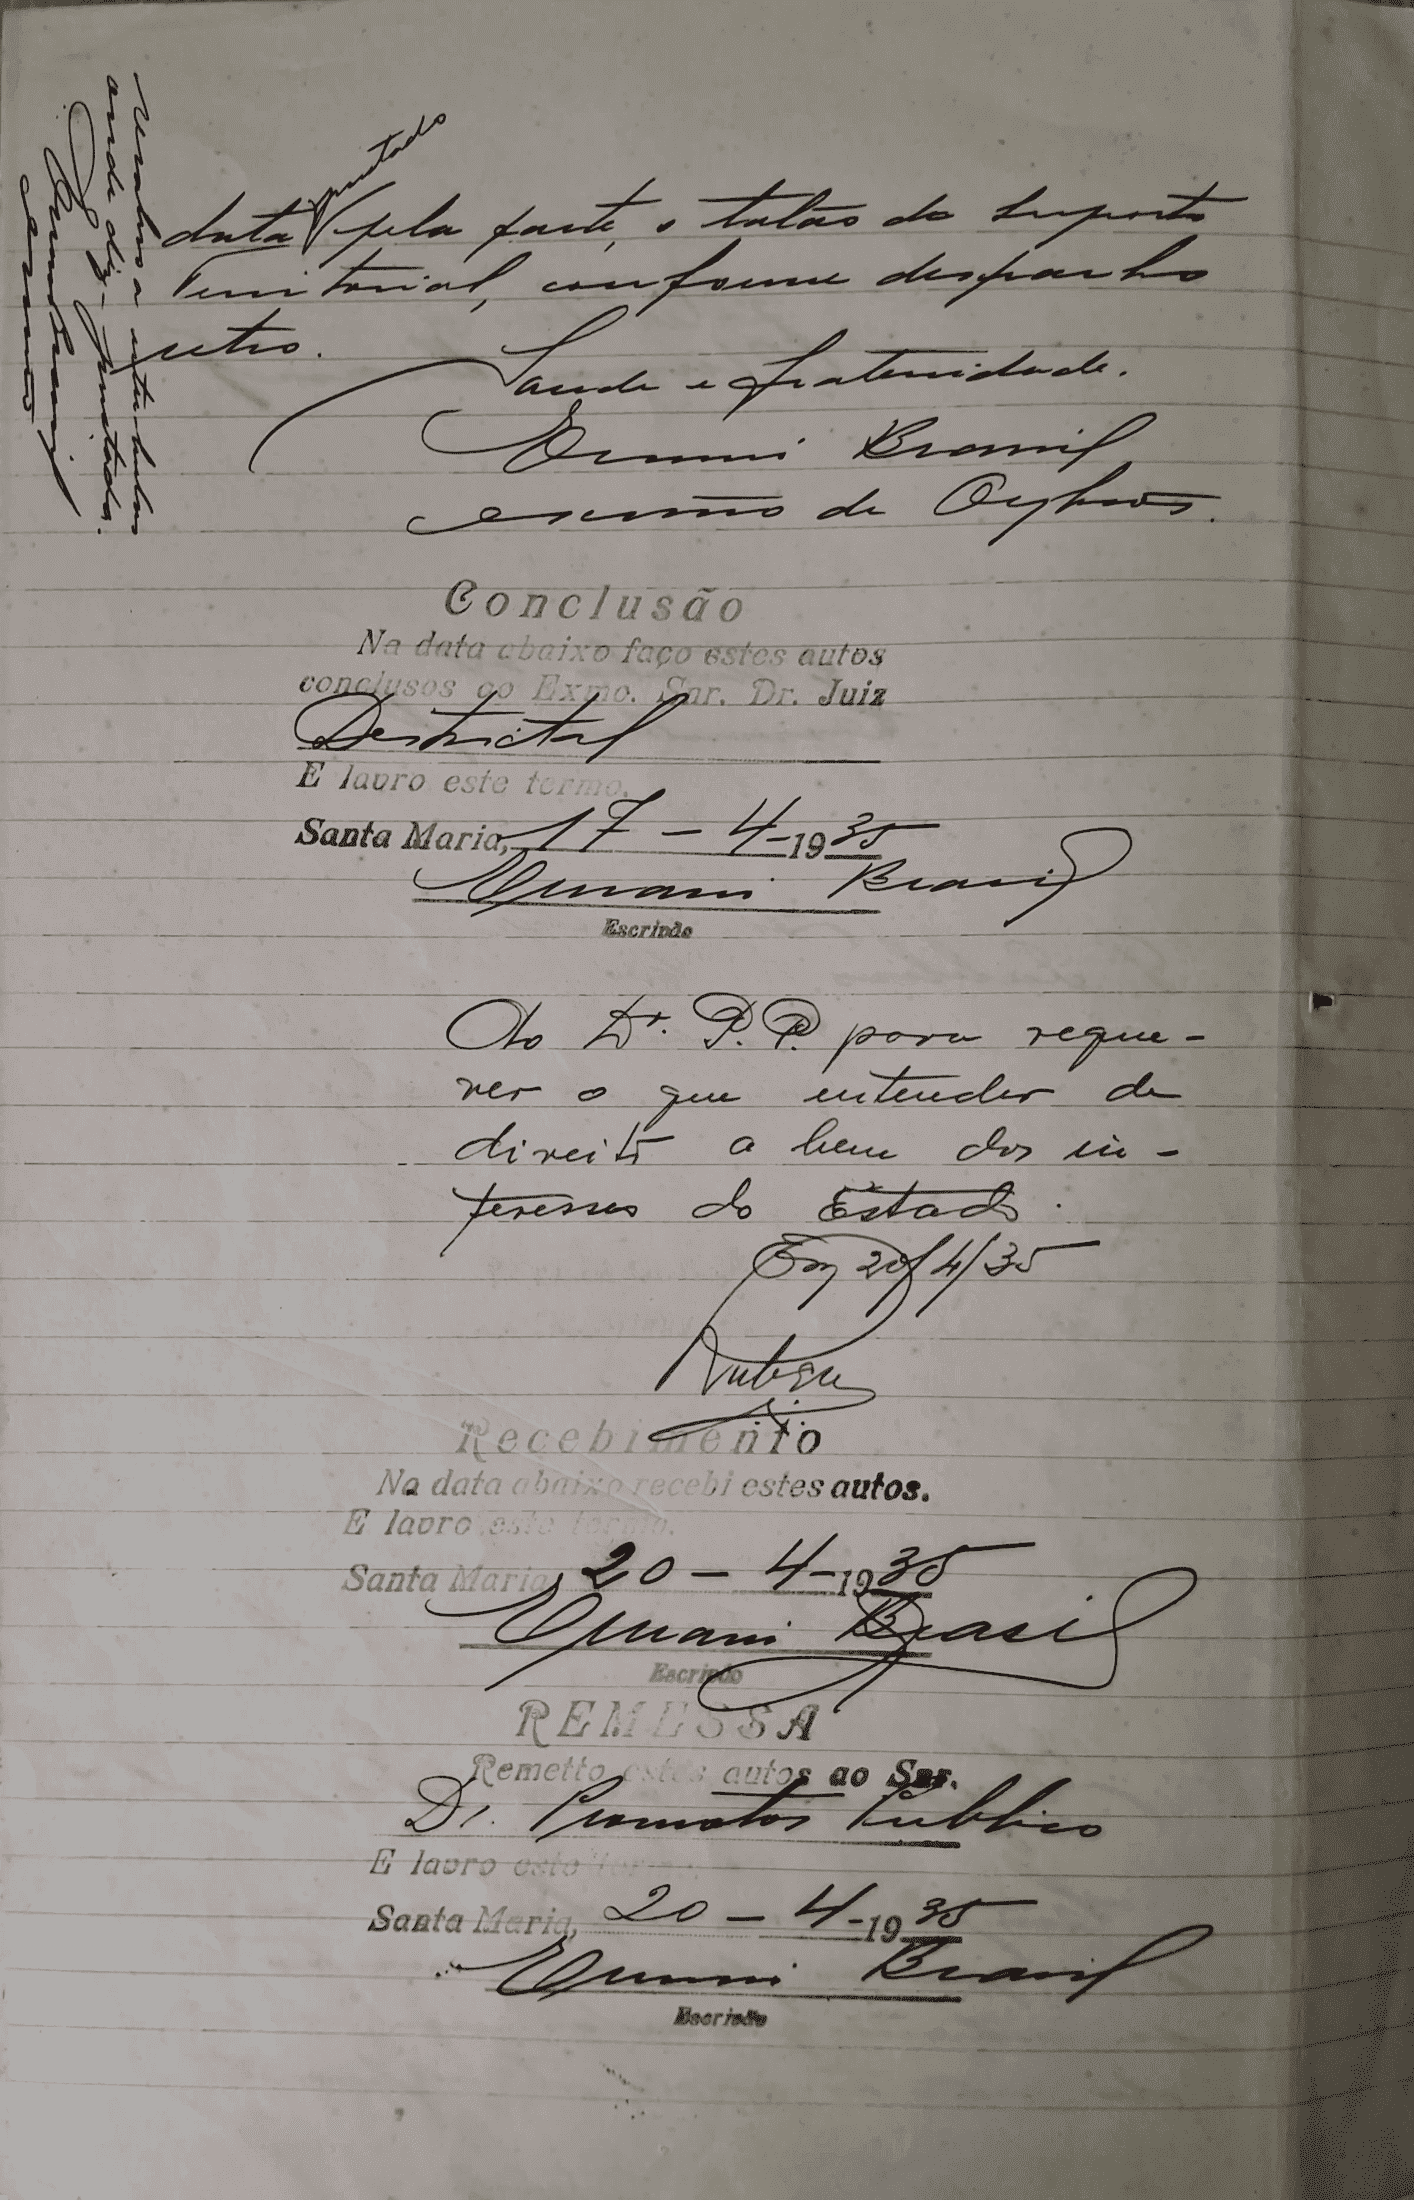 Resalvo a entrelinha
onde diz - juntado.
Ernani Brasil
escrivão
juntado
data pela parte, o talão do Imposto
Territorial, conforme despacho
retro.
Saude e fraternidade.
Ernani Brasil
escrivão de Orphãos.
Conclusão
Na data abaixo faço estes autos
conclusos ao Exmo. Snr. Dr. Juiz
Districtal
E lavro este termo.
Santa Maria, 17 - 4 - 1935
Ernani Brasil
Escrivão
Ao Dr. P. P. para reque-
rer o que entender de
direito a bem dos in-
teresses do Estado.
Em 20/4/35
Recebimento
Na data abaixo recebi estes autos.
E lavro este termo.
Santa Maria, 20 - 4 - 1935
Ernani Brasil
Escrivão
REMESSA
Remetto estes autos ao Snr.
Dr. Promotor Publico
E lavro este termo.
Santa Maria, 20 - 4 - 1935
Ernani Brasil
Escrivão